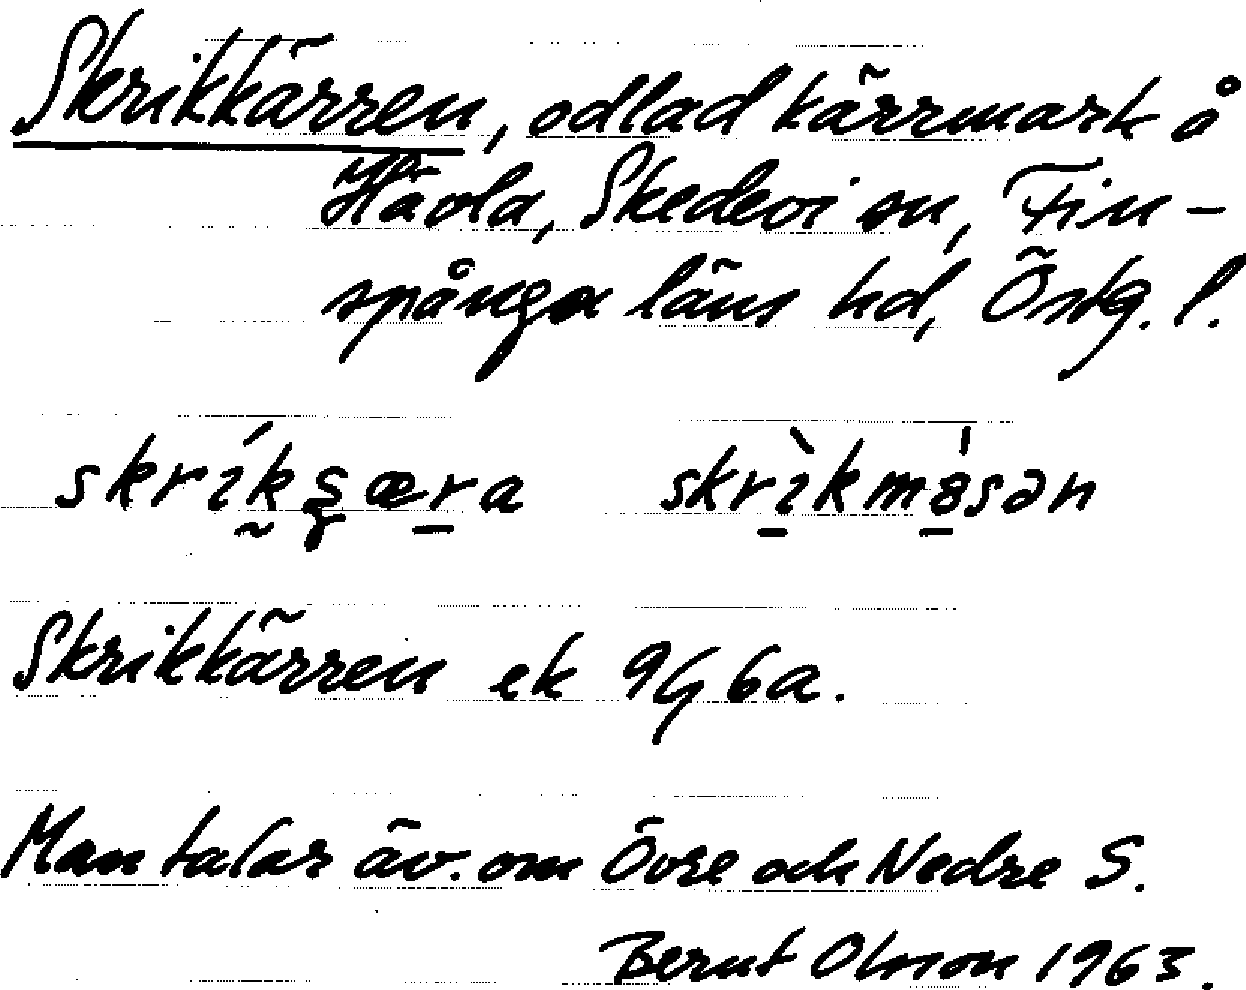 Skrikkärren, odlad kärrmark å
Hävla, Skedevi sn, Fin-
spånga läns hd, Östg. l.
skrík̰ʂæ̠r̠a skrìkmósən
Skrikkärren ek 9G6a.
Man talar äv. om Övre och Nedre S.
Bernt Olsson 1963.